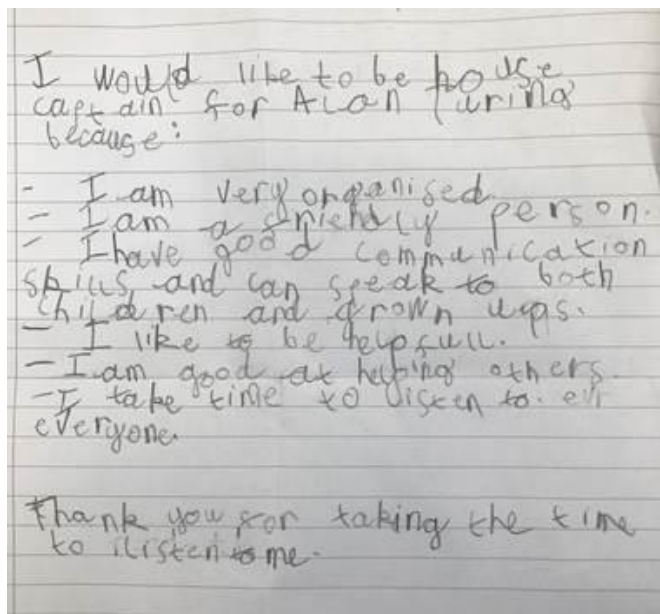 I would like to be house
captain for Alan Turing
because:
- I am very organised.
- I am a friendly person.
- I have good communication
skills and can speak to both
children and grown ups.
- I like to be helpfull.
- I am good at helping others.
- I take time to listen to evr
everyone.
Thank you for taking the time
to listen to me.